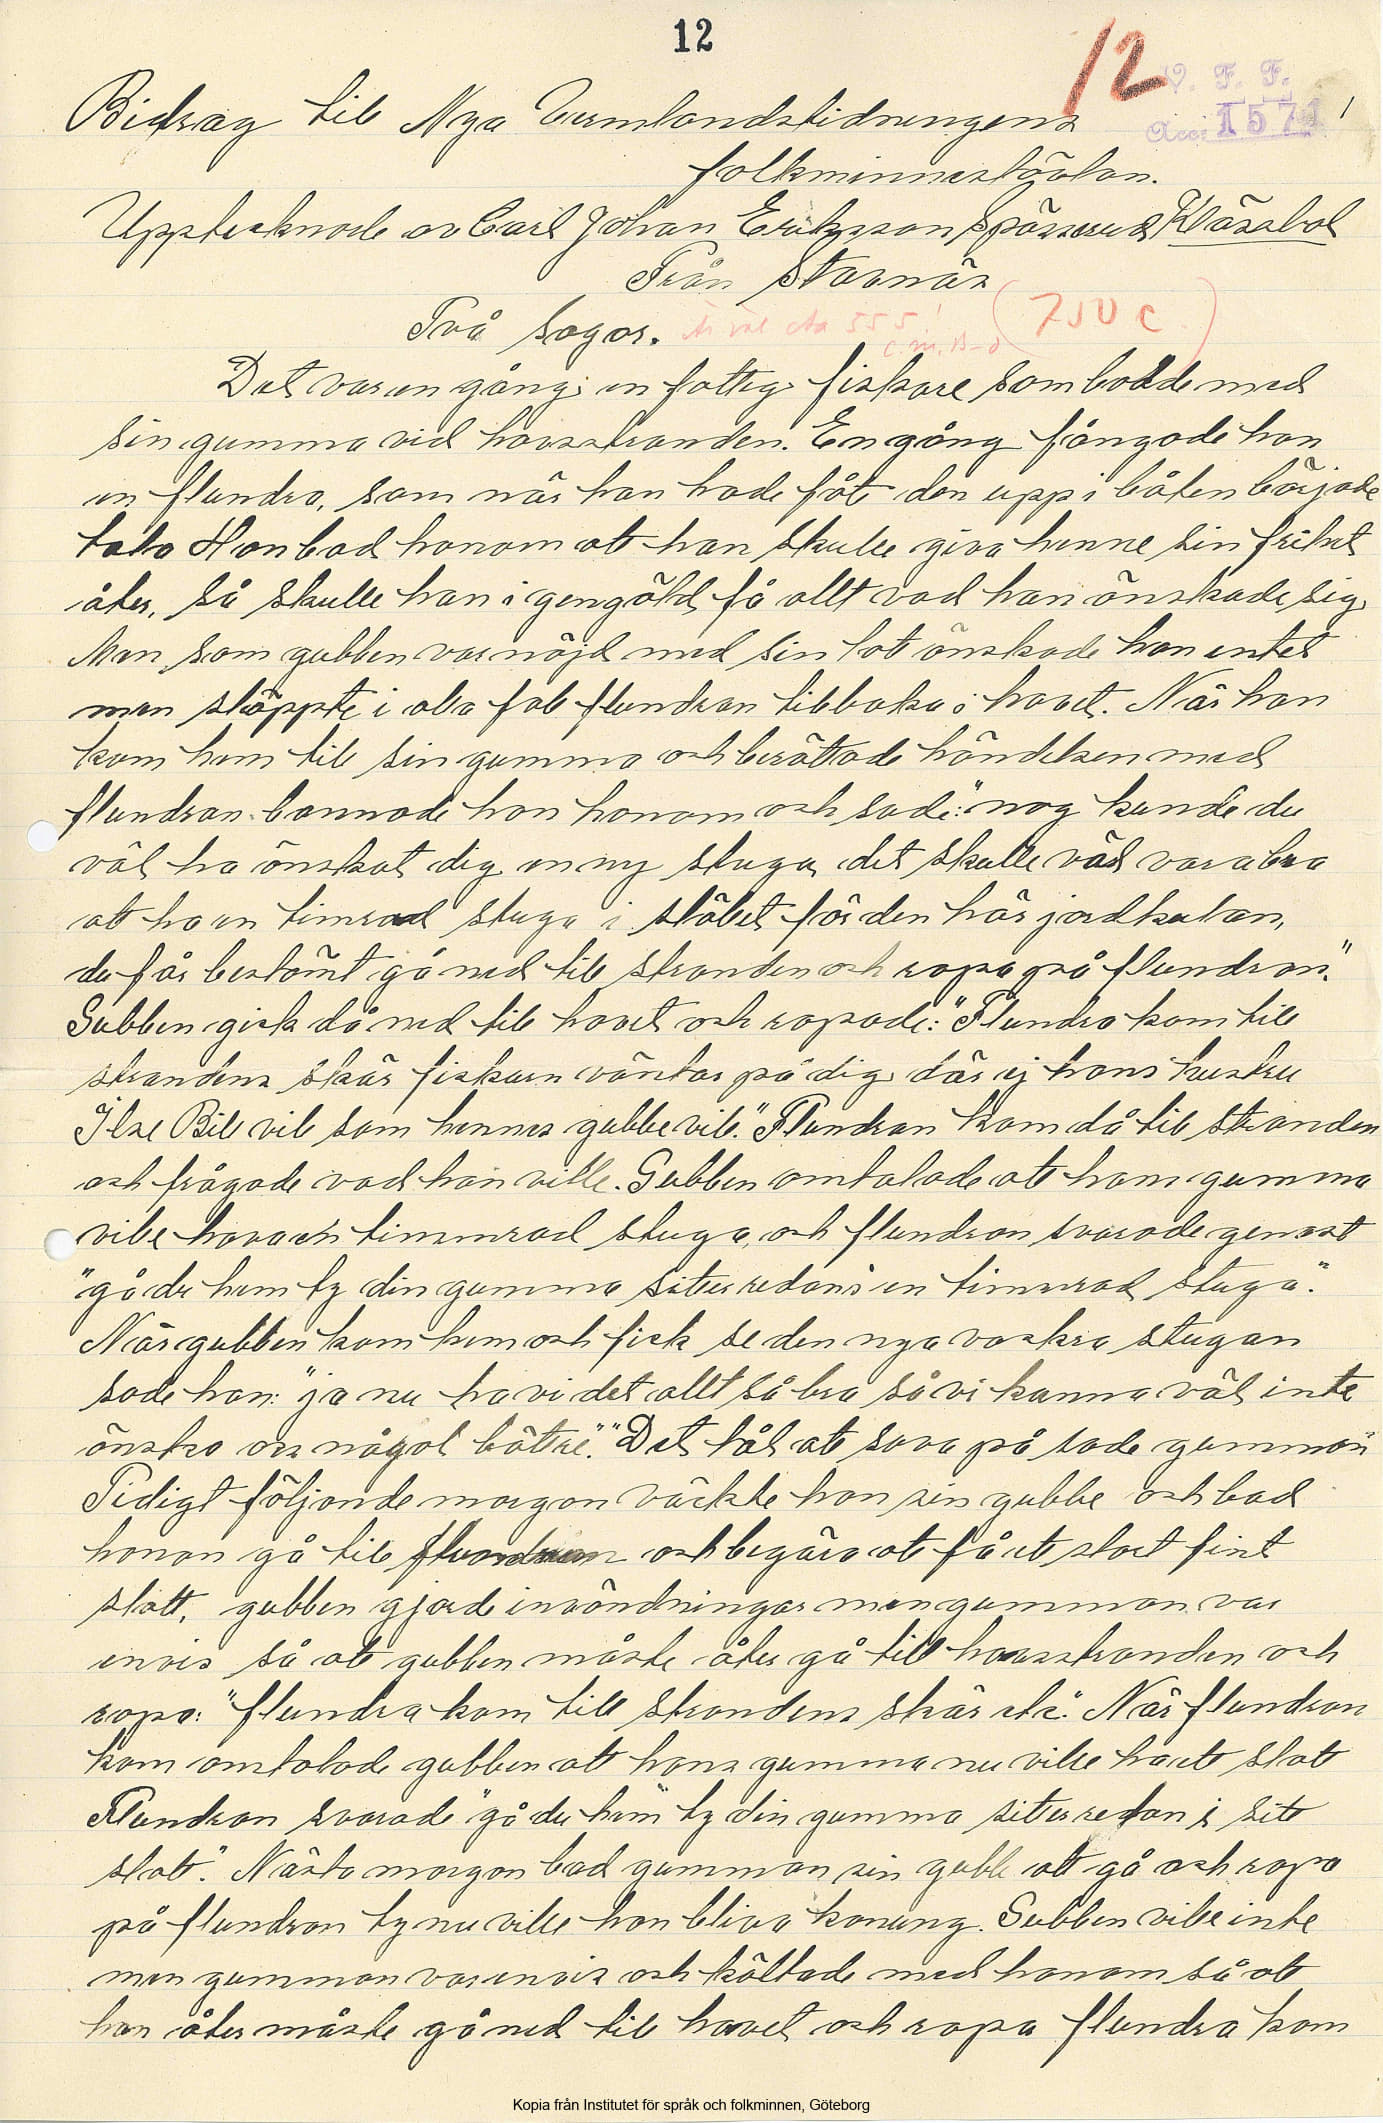 12
12
V. F. F.
Acc. 1571
1
Bidrag till Nya Vermlandstidningens
folkminnestävlan.
Upptecknade av Carl Johan Eriksson Spässerud Klässbol
Från Stavnäs
Två Sagor. Är väl Aa 555! (750 c)
C.M.B-d
Det var en gång en fattig fiskare som bodde med
sin gumma vid havsstranden. En gång fångade han
en flundra, som när han hade fåt den upp i båten började
tala Hon bad honom att han skulle giva henne sin frihet
åter, så skulle han i gengäld få allt vad han önskade sig.
Men som gubben var nöjd med sin lot önskade han intet
men släppte i alla fall flundran tillbaka i havet. När han
kom hem till sin gumma och berättade händelsen med
flundran bannade hon honom och sade: "nog kunde du
väl ha önskat dig en ny stuga, det skulle väl vara bra
att ha en timrad stuga i stället för den här jordkulan,
du får bestämt gå ned till stranden och ropa på flundran."
Gubben gick då ned till havet och ropade: "Flundra kom till
strandens skär fiskaren väntar på dig där ej hans hustru
Ilse Bill vill som hennes gubbe vill." Flundran kom då till stranden
och frågade vad han ville. Gubben omtalade att hans gumma
ville hava en timmrad stuga, och flundran svarade genast
"gå du hem ty din gumma sitter redan i en timmrad stuga".
När gubben kom hem och fick se den nya vackra stugan
sade han: "ja nu ha vi det allt så bra så vi kunna väl inte
önska oss något bättre". "Det tål att sova på sade gumman"
Tidigt följande morgon väckte hon sin gubbe och bad
honom gå till flundran och begära att få ett stort fint
slott, gubben gjorde invändningar men gumman var
envis så att gubben måste åter gå till havsstranden och
ropa: "flundra kom till strandens skär etc." När flundran
kom omtalade gubben att hans gumma nu ville ha ett slott
Flundran svarade "gå du hem" ty din gumma sitter redan i sitt
slott". Nästa morgon bad gumman sin gubbe att gå och ropa
på flundran ty nu ville hon bliva konung. Gubben ville inte
men gumman var envis och kältade med honom så att
han åter måste gå ned till havet och ropa flundra kom
Kopia från Institutet för språk och folkminnen, Göteborg